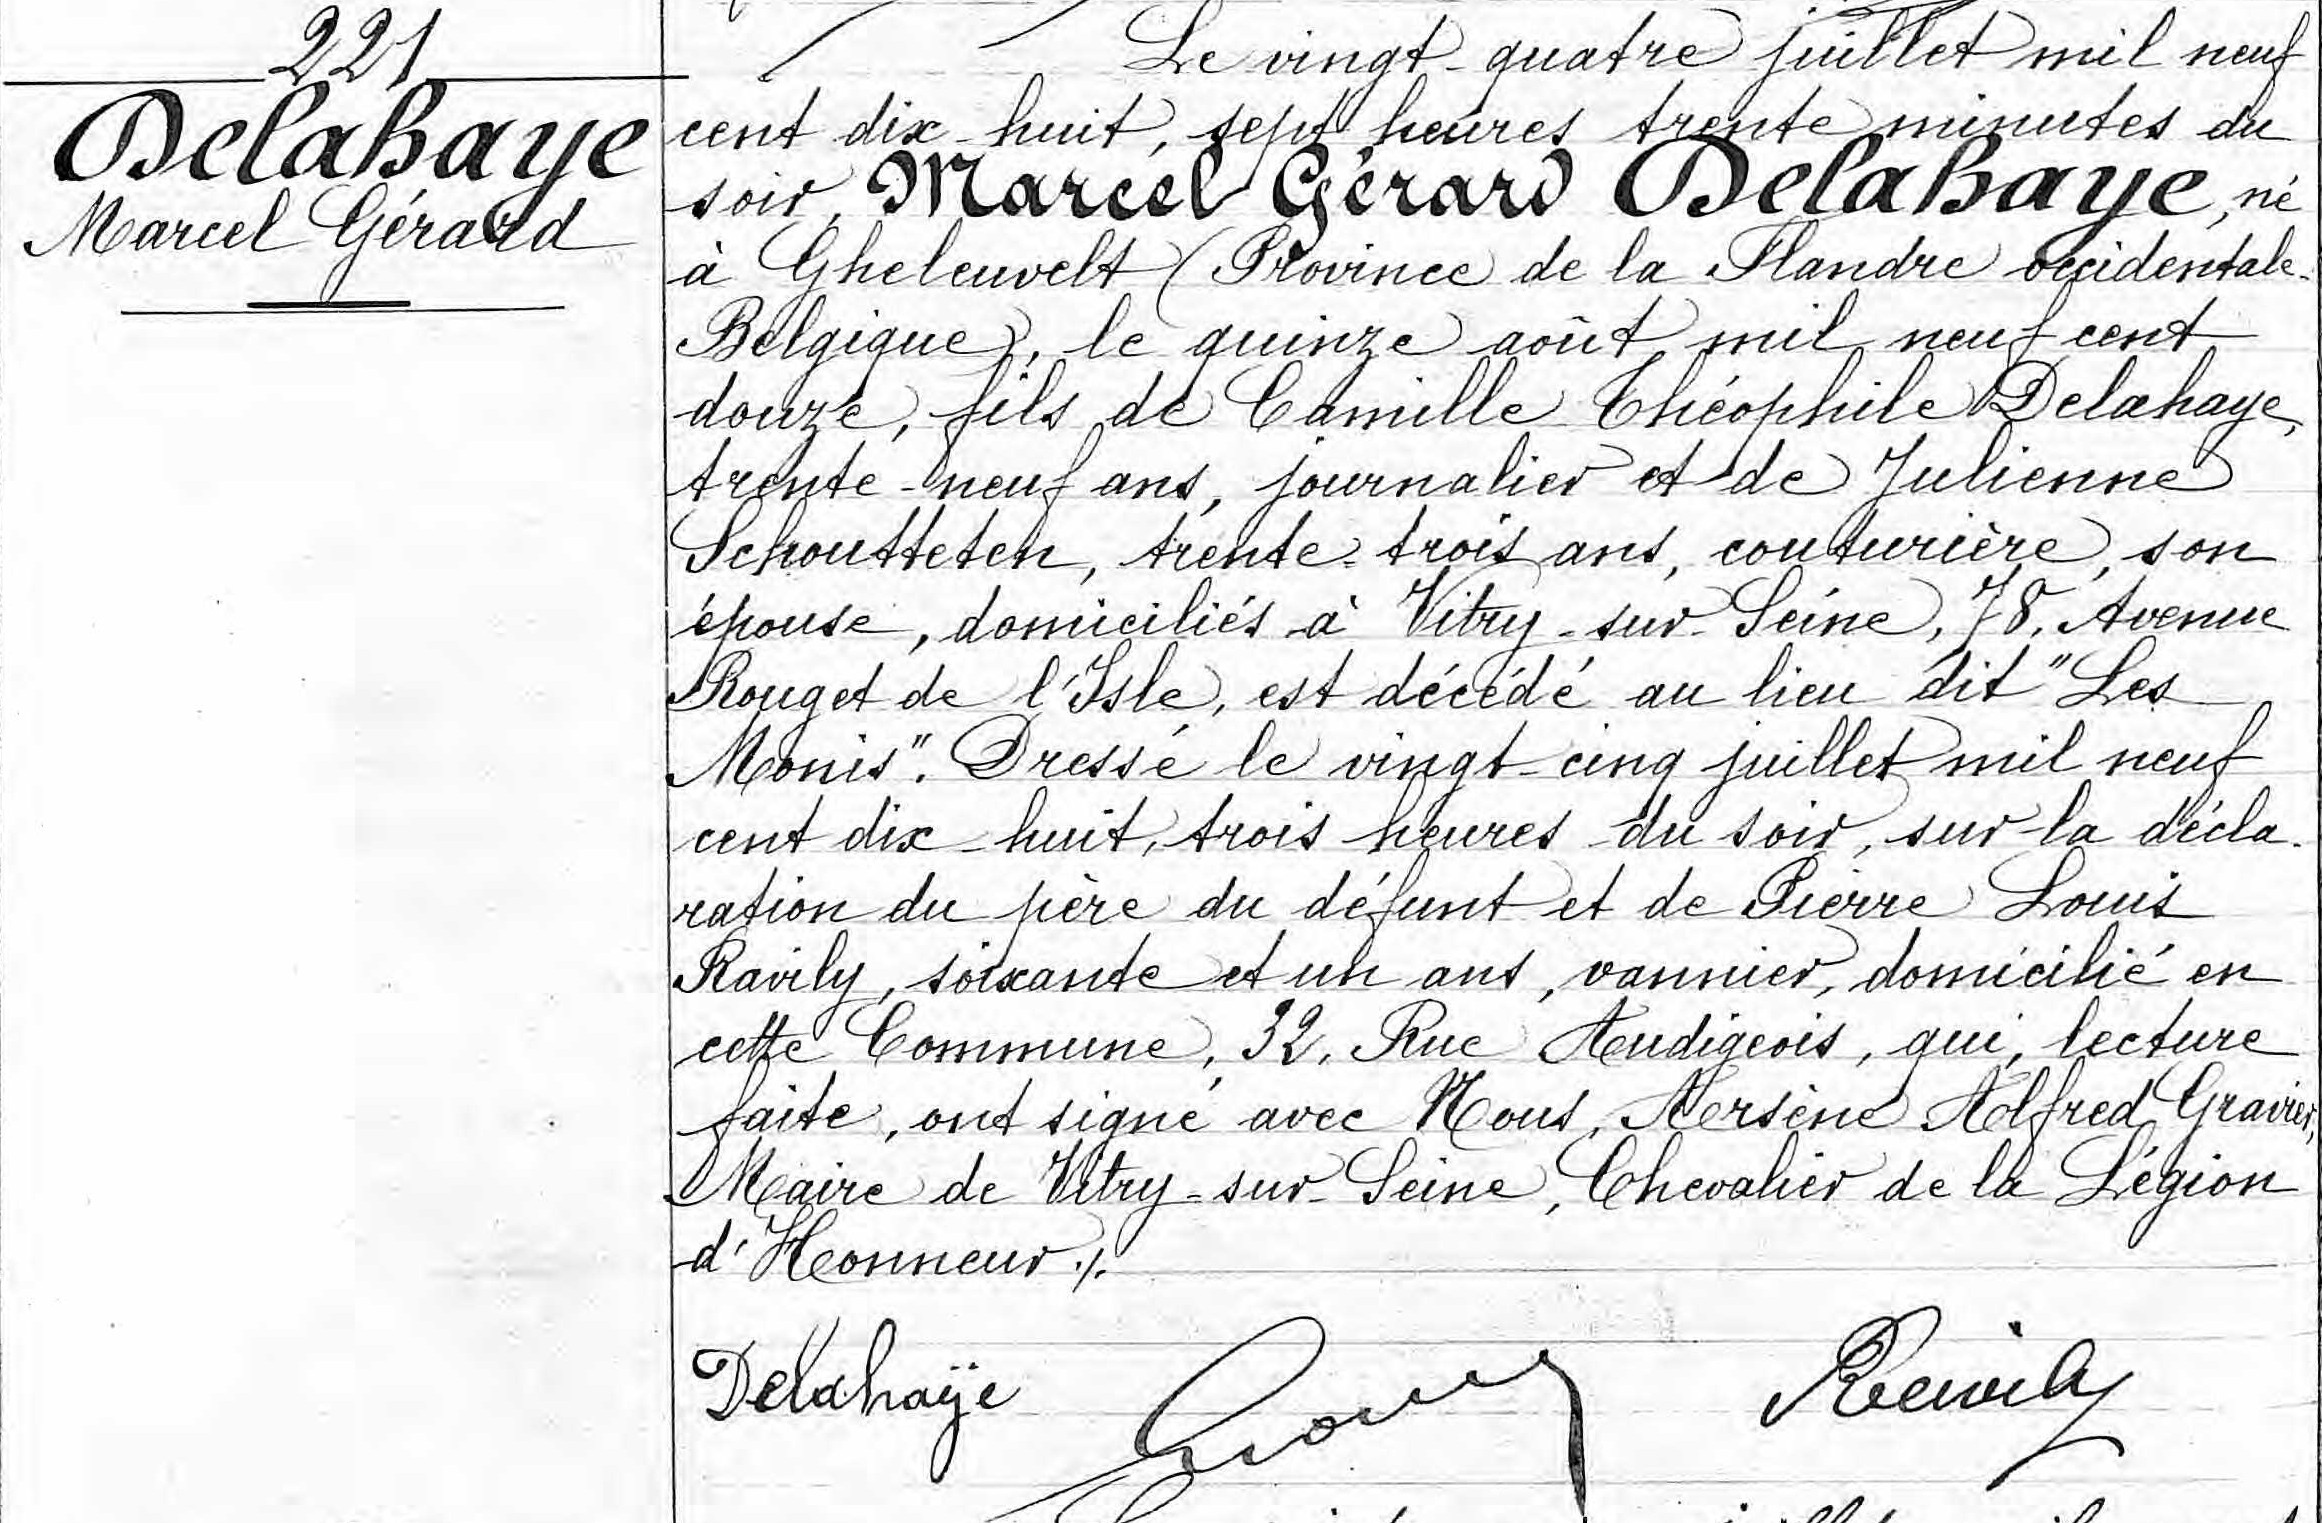 221
Delahaye
Marcel Gérard
Le vingt-quatre juillet mil neuf
cent dix-huit, sept heures trente minutes du
soir, Marcel Gérard Delahaye, né
à Gheleuvelt (Province de la Flandre occidentale-
Belgique), le quinze août mil neuf cent
douze, fils de Camille Théophile Delahaye,
trente-neuf ans, journalier et de Julienne
Schoutteten, trente-trois ans, couturière, son
épouse, domiciliés à Vitry-sur-Seine, 78, Avenue
Rouget de l'Isle, est décédé au lieu dit "Les
Monis". Dressé le vingt-cinq juillet mil neuf
cent dix-huit, trois heures du soir, sur la décla-
ration du père du défunt et de Pierre Louis
Ravily, soixante et un ans, vannier, domicilié en
cette Commune, 32, Rue Audigeois, qui, lecture
faite, ont signé avec Nous, Arsène Alfred Gravier,
Maire de Vitry-sur-Seine, Chevalier de la Légion
d'Honneur ./.
Delahaÿe